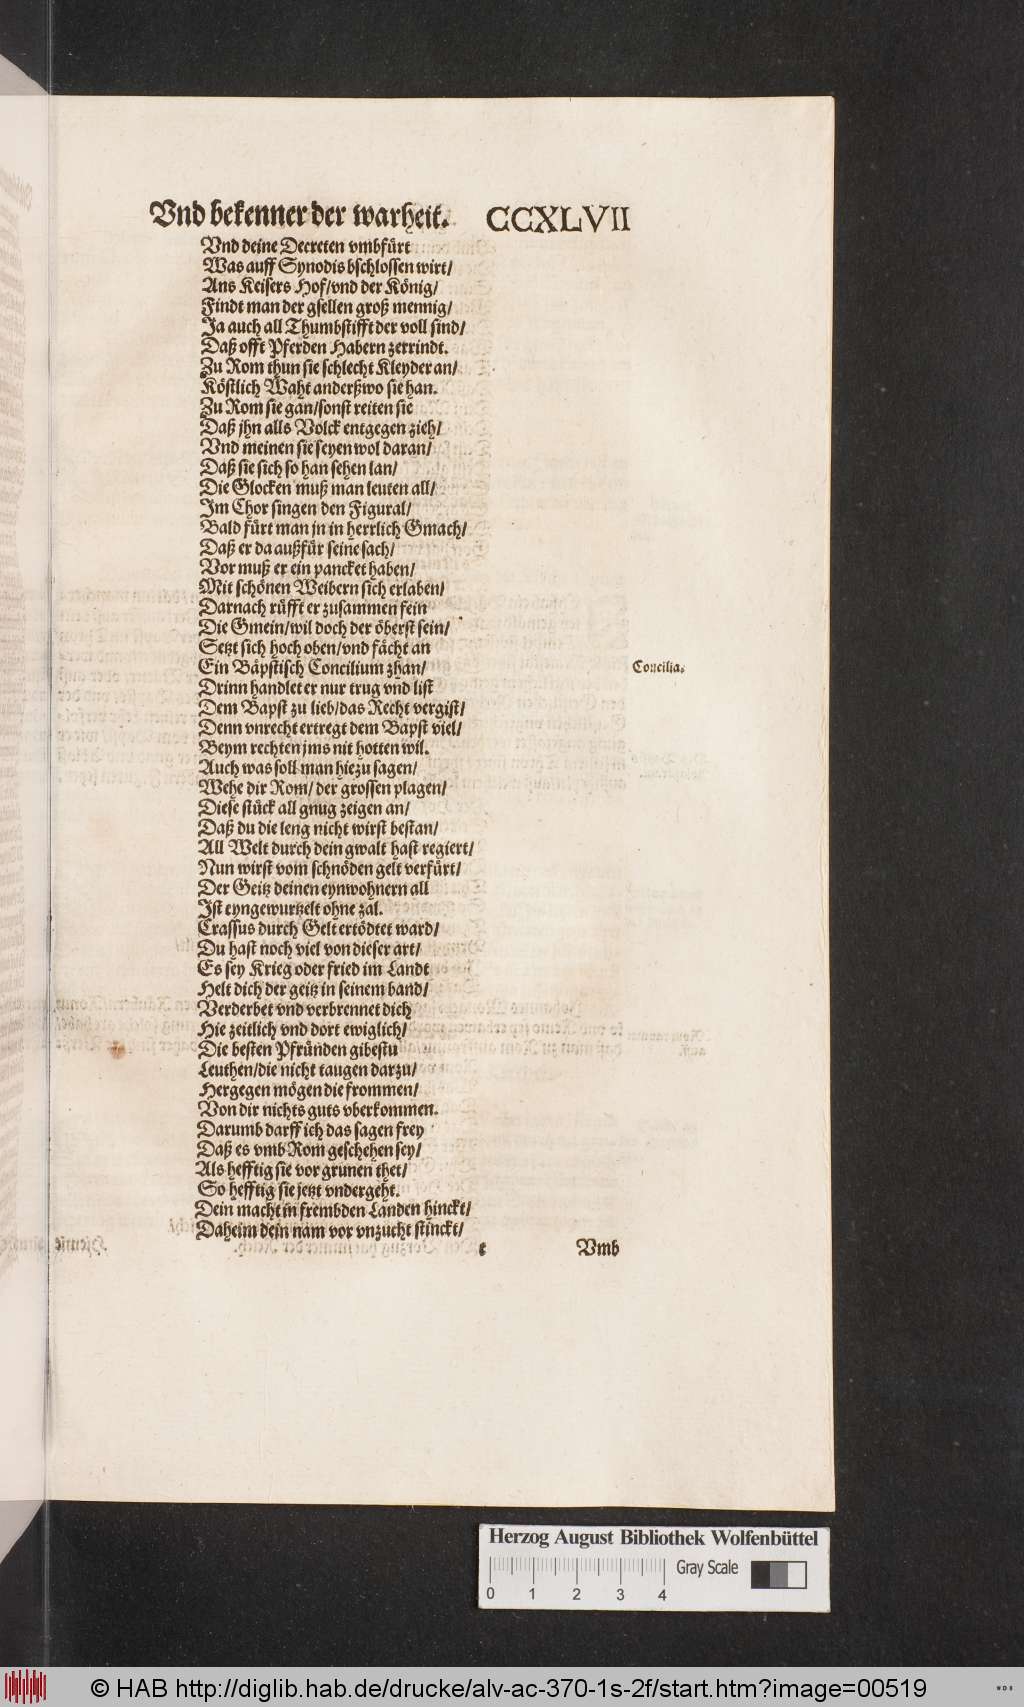 Vnd bekenner der warheit. CCXLVII
Vnd deine Decreten vmbfürt
Was auff Synodis bschlossen wirt/
Ans Keisers Hof/vnd der König/
Findt man der gsellen groß mennig/
Ja auch all Thumbstifft der voll sind/
Daß offt Pferden Habern zerrindt.
Zu Rom thun sie schlecht Kleyder an/
Köstlich Waht anderßwo sie han.
Zu Rom sie gan/sonst reiten sie
Daß jhn alls Volck entgegen zieh/
Vnd meinen sie seyen wol daran/
Daß sie sich so han sehen lan/
Die Glocken muß man leuten all/
Im Chor singen den Figural/
Bald fürt man jn in herrlich Gmach/
Daß er da außfür seine sach/
Vor muß er ein pancket haben/
Mit schönen Weibern sich erlaben/
Darnach rüfft er zusammen fein
Die Gmein/wil doch der öberst sein/
Setzt sich hoch oben/vnd fächt an
Ein Bäpstisch Concilium zhan/
Concilia.
Drinn handlet er nur trug vnd list
Dem Bapst zu lieb/das Recht vergist/
Denn vnrecht ertregt dem Bapst viel/
Beym rechten jms nit hotten wil.
Auch was soll man hiezu sagen/
Wehe dir Rom/ der grossen plagen/
Diese stück all gnug zeigen an/
Daß du die leng nicht wirst bestan/
All Welt durch dein gwalt hast regiert/
Nun wirst vom schnöden gelt verfürt/
Der Geitz deinen eynwohnern all
Ist eyngewurtzelt ohne zal.
Crassus durch Gelt ertödtet ward/
Du hast noch viel von dieser art/
Es sey Krieg oder fried im Landt
Helt dich der geitz in seinem band/
Verderbet vnd verbrennet dich
Hie zeitlich vnd dort ewiglich/
Die besten Pfründen gibestu
Leuthen/die nicht taugen darzu/
Hergegen mögen die frommen/
Von dir nichts guts vberkommen.
Darumb darff ich das sagen frey
Daß es vmb Rom geschehen sey/
Als hefftig sie vor grunen thet/
So hefftig sie jetzt vndergeht.
Dein macht in frembden Landen hinckt/
Daheim dein nam vor vnzucht stinckt/
t Vmb
Herzog August Bibliothek Wolfenbüttel
Gray Scale
0 1 2 3 4
© HAB http://diglib.hab.de/drucke/alv-ac-370-1s-2f/start.htm?image=00519